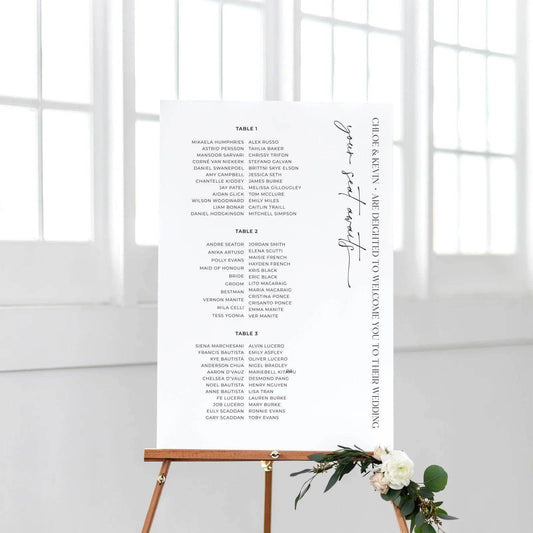 TABLE 1
MIKAELA HUMPHRIES ALEX RUSSO
ASTRID PERSSON TAHLIA BAKER
MANSOOR SARVARI CHRISSY TRIFON
CORNÉ VAN NIEKERK STEFANO GALVAN
DANIEL SWANEPOEL BRITTNI SKYE ELSON
AMY CAMPBELL JESSICA SETH
CHANTELLE KIDDEY JAMES BURKE
JAY PATEL MELISSA GILLOUGLEY
AIDAN GLICK TOM MCCLURE
WILSON WOODWARD EMILY MILES
LIAM BONAR CAITLIN TRAILL
DANIEL HODGKINSON MITCHELL SIMPSON
TABLE 2
ANDRE SEATOR JORDAN SMITH
ANIKA ARTUSO ELENA SCUTTI
POLLY EVANS MAISIE FRENCH
HAYDEN FRENCH
MAID OF HONOUR KRIS BLACK
BRIDE ERIC BLACK
GROOM LITO MACARAIG
BESTMAN MARIA MACARAIG
VERNON MANITE CRISTINA PONCE
CRISANTO PONCE
MILA CELLI EMMA MANITE
TESS YGONIA VER MANITE
TABLE 3
SIENA MARCHESANI ALVIN LUCERO
FRANCIS BAUTISTA EMILY ASPLEY
KYE BAUTISTA OLIVER LUCERO
ANDERSON CHUA NIGEL BRADLEY
AARON D'VAUZ MARIEBELL
CHELSEA D'VAUZ DESMOND PANG
NOEL BAUTISTA HENRY NGUYEN
ANNE BAUTISTA LISA TRAN
FE LUCERO MARLO BURKE
JOB LUCERO MARY BURKE
EULY SCADDAN RONNIE EVANS
GARY SCADDAN TOBY EVANS
your seat awaits
CHLOE & KEVIN • ARE DEIGHTED TO WELCOME YOU TO THEIR WEDDING